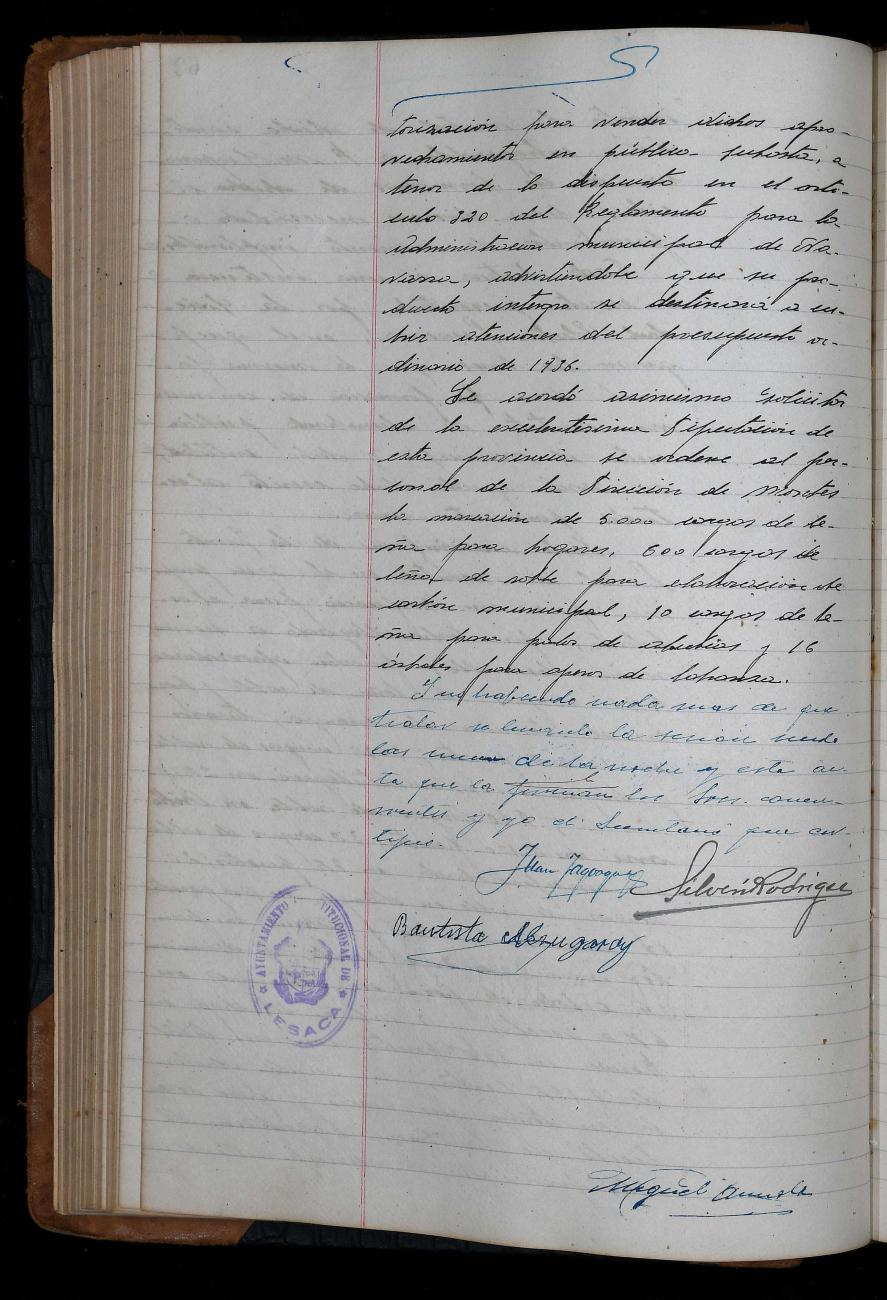 torización para vender dichos apro-
vechamientos en pública subasta, a
tenor de lo dispuesto en el artí-
culo 320 del Reglamento para la
Administración municipal de Na-
varra, advirtiéndole que su pro-
ducto íntegro se destinará a cu-
brir atenciones del presupuesto or-
dinario de 1936.
Se acordó asimismo solicitar
de la excelentísima Diputación de
esta provincia se ordene al per-
sonal de la Dirección de Montes
la marcación de 5.000 cargas de le-
ña para hogares, 600 cargas de
leña de roble para elaboración de
carbón municipal, 10 cargas de le-
ña para palos de alubias y 16
árboles para aperos de labranza.
Y no habiendo nada mas de que
tratar se levantó la sesión siendo
las nueve de la noche y esta ac-
ta que la firman los Sres. concu-
rrentes y yo el Secretario que cer-
tifico.
Juan
Silverio Rodríguez
Bautista Alzugaray
AYUNTAMIENTO
TITUCIONAL DE
LESACA
Miguel